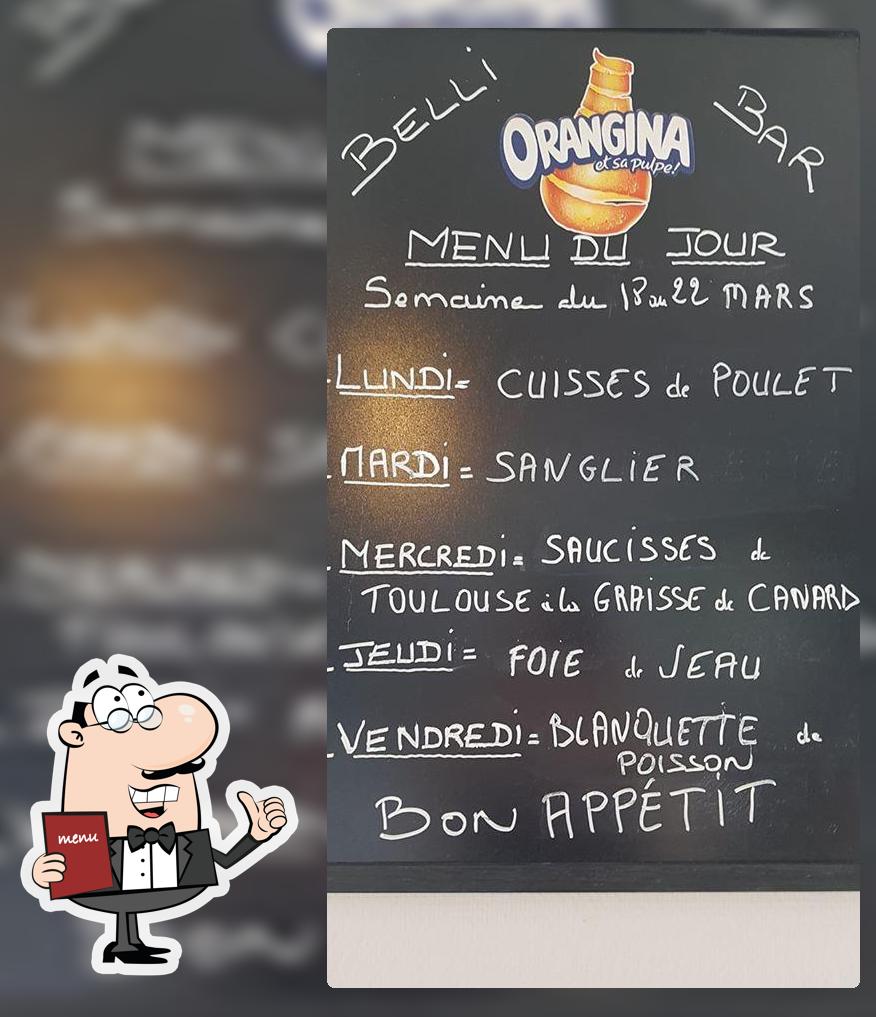 BELLI BAR
ORANGINA
et sa pulpe!
MENU DU JOUR
Semaine du 18 au 22 MARS
LUNDI = CUISSES de POULET
MARDI = SANGLIER
MERCREDI = SAUCISSES de
TOULOUSE à la GRAISSE de CANARD
JEUDI = FOIE de VEAU
VENDREDI = BLANQUETTE de
POISSON
BON APPÉTIT
menu